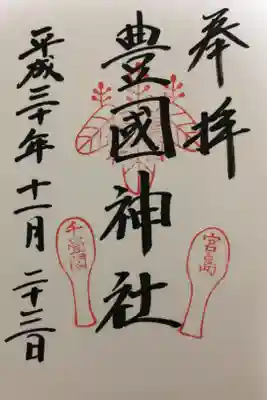 奉拝
豊國神社
宮島
千畳閣
平成三十年十一月二十三日